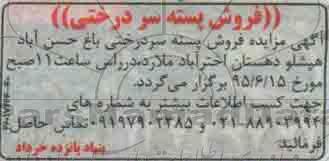 ((فروش پسته سر درختی))
آگهی مزایده فروش پسته سردرختی باغ حسن آباد
هیشلو دهستان اخترآباد ملارد،درراس ساعت۱۱صبح
مورخ ۹۵/۶/۱۵ برگزار می گردد.
جهت کسب اطلاعات بیشتر به شماره های
۰۲۱-۸۸۹۰۳۹۹۴ و ۰۹۱۹۷۹۰۲۳۸۵ تماس حاصل
فرمائید
بنیاد پانزده خرداد